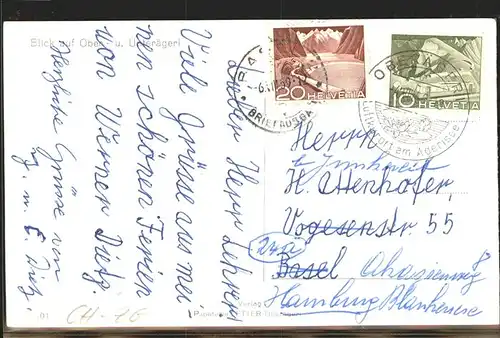 Blick auf Ober- u. Unterägeri
Lieber Herr Lehrer
Viele Grüsse aus mei
nen schönen Ferien
von Werner Dietz.
Herzliche Grüsse von
u. E. Dietz
HELVETIA
20
HELVETIA
10
OBERÄGERI
Luftkurort am Aegerisee
BRIEFAUSGABE
Herrn
H. Ottenhofer,
Vogesenstr. 55
Basel
Hamburg Blankenese
Verlag
CH-16